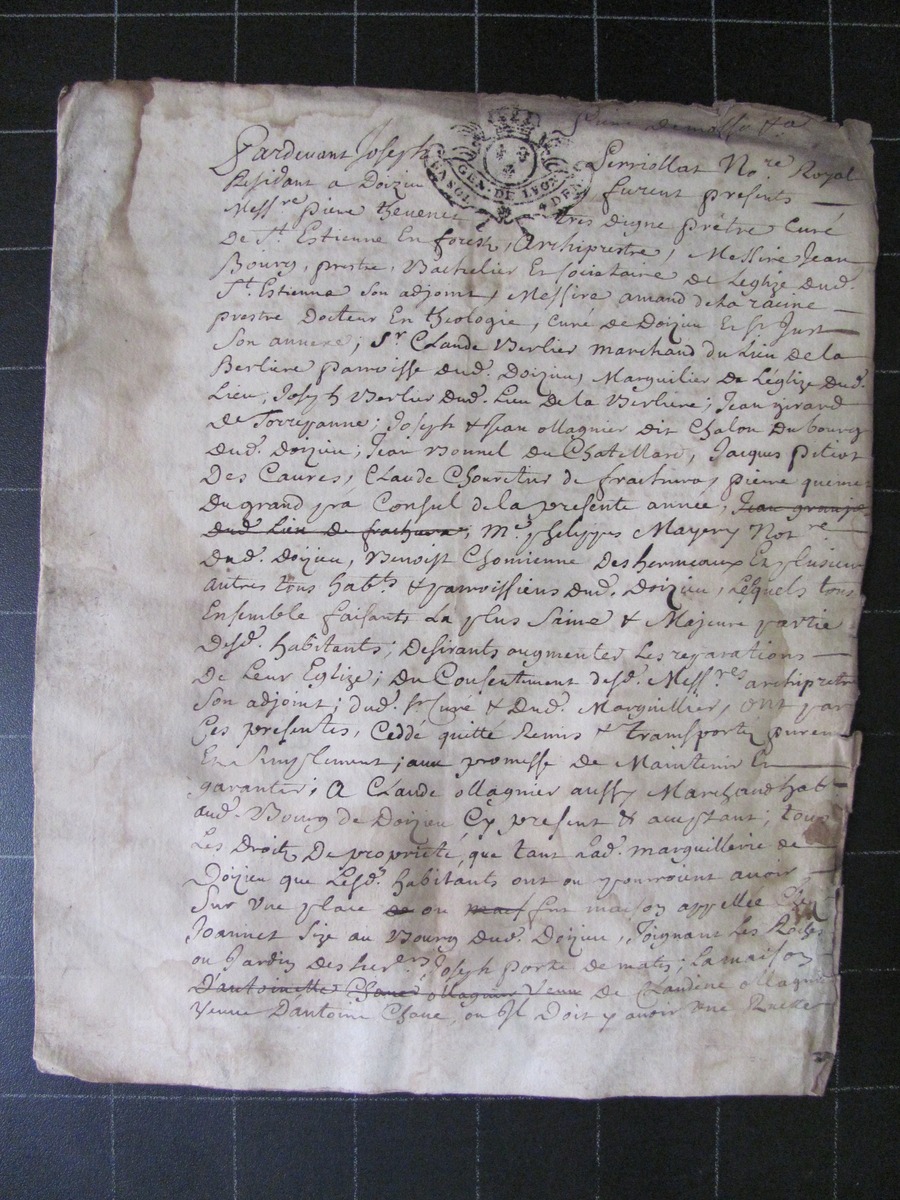 Pardevant Joseph Perriollat No.re Royal
GEN. DE LYON
Residant a Doizieu furent presents
Mess.re pierre thevenet tres digne prêtre Curé
De S.t Estienne En forest, Archiprestre, Messire Jean
Bourg, prestre, Bachelier Et sociétaire de Leglize dud.
S.t Estienne son adjoint, Messire amand dela racine
prestre Docteur En theologie, Curé de Doizieu Et s.t Just
Son annexe; S.r Claude Verlier marchand du Lieu de la
Berliere parroisse dud. Doizieu, Marguilier De Léglize dud.
Lieu; Joseph Verlier dud. Lieu De la Berliere; Jean girard
de Torrepanne; Joseph & Jean ollagnier dit Chalon Du bourg
dud. Doizieu; Jean Bonnel du Chatellard, Jacques pitiot
Des Caures, Claude Chouretier de frachura, pierre
Du grand pra Consul de la presente année, Jean grange
dud. Lieu de frachura, M.e philippes Mayery Not.re
dud. Doizieu, Benoist Chomienne des hermeaux Et plusieurs
autres tous hab.ts & parroissiens dud. Doizieu, Lesquels tous
Ensemble faisants La plus Saine & Majeure partie
desd. habitants; desirants augmenter Les reparations
De Leur Eglize; du Consentiment desd. Mess.res archipretre
Son adjoint; dud. s.r Curé & Dud. Marguillier, ont par
Ces presentes, Ceddé quitté Remis & transporté purem
Et Simplement; avec promesse de Maintenir Et
garantir; A Claude ollagnier aussy Marchand hab
aud. Bourg de Doizieu Cy present & acceptant, tous
Les Droits De propriete, que tant Lad. marguillerie de
Doizieu que Lesd. habitants ont ou pourroient avoir,
Sur Une place de ou mai fut maison appellée
Joannet Size au Bourg dud. Doizieu, Joignant Les
ou Jardin des her.ers Joseph porte de matis; La maison
D'antoinette Chave ollagnier Veuve de Claudine ollagnier
Veuve D'antoine Chave, ou Il Doit y avoir une Ruelle